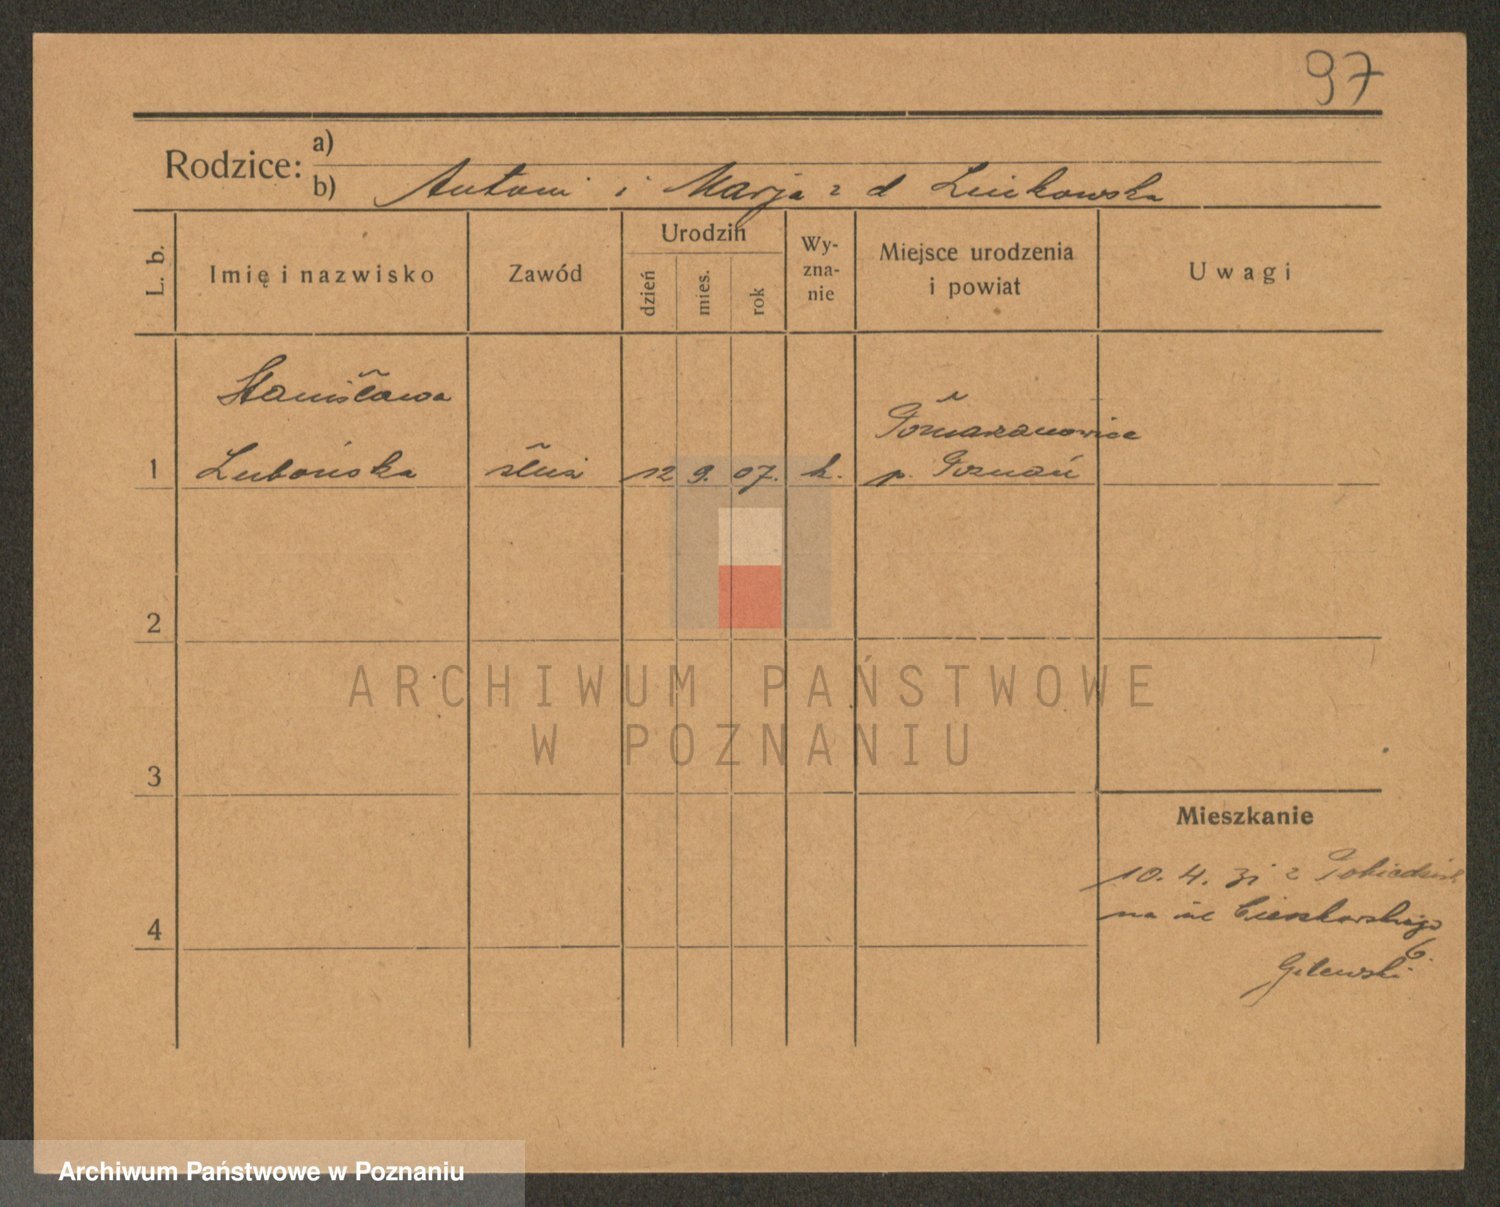 97
Rodzice: a)
b) Antoni i Marja z d
L. b.
Imię i nazwisko
Zawód
Urodzin
dzień
mies.
rok
Wy-
zna-
nie
Miejsce urodzenia
i powiat
Uwagi
Stanisława
Lubońska
1
służ
12 9. 07.
k.
p. Poznań
2
ARCHIWUM PAŃSTWOWE
W POZNANIU
3
Mieszkanie
10. 4. 31 z
na ul Cieszkowskiego
6.
Gilewski
4
Archiwum Państwowe w Poznaniu